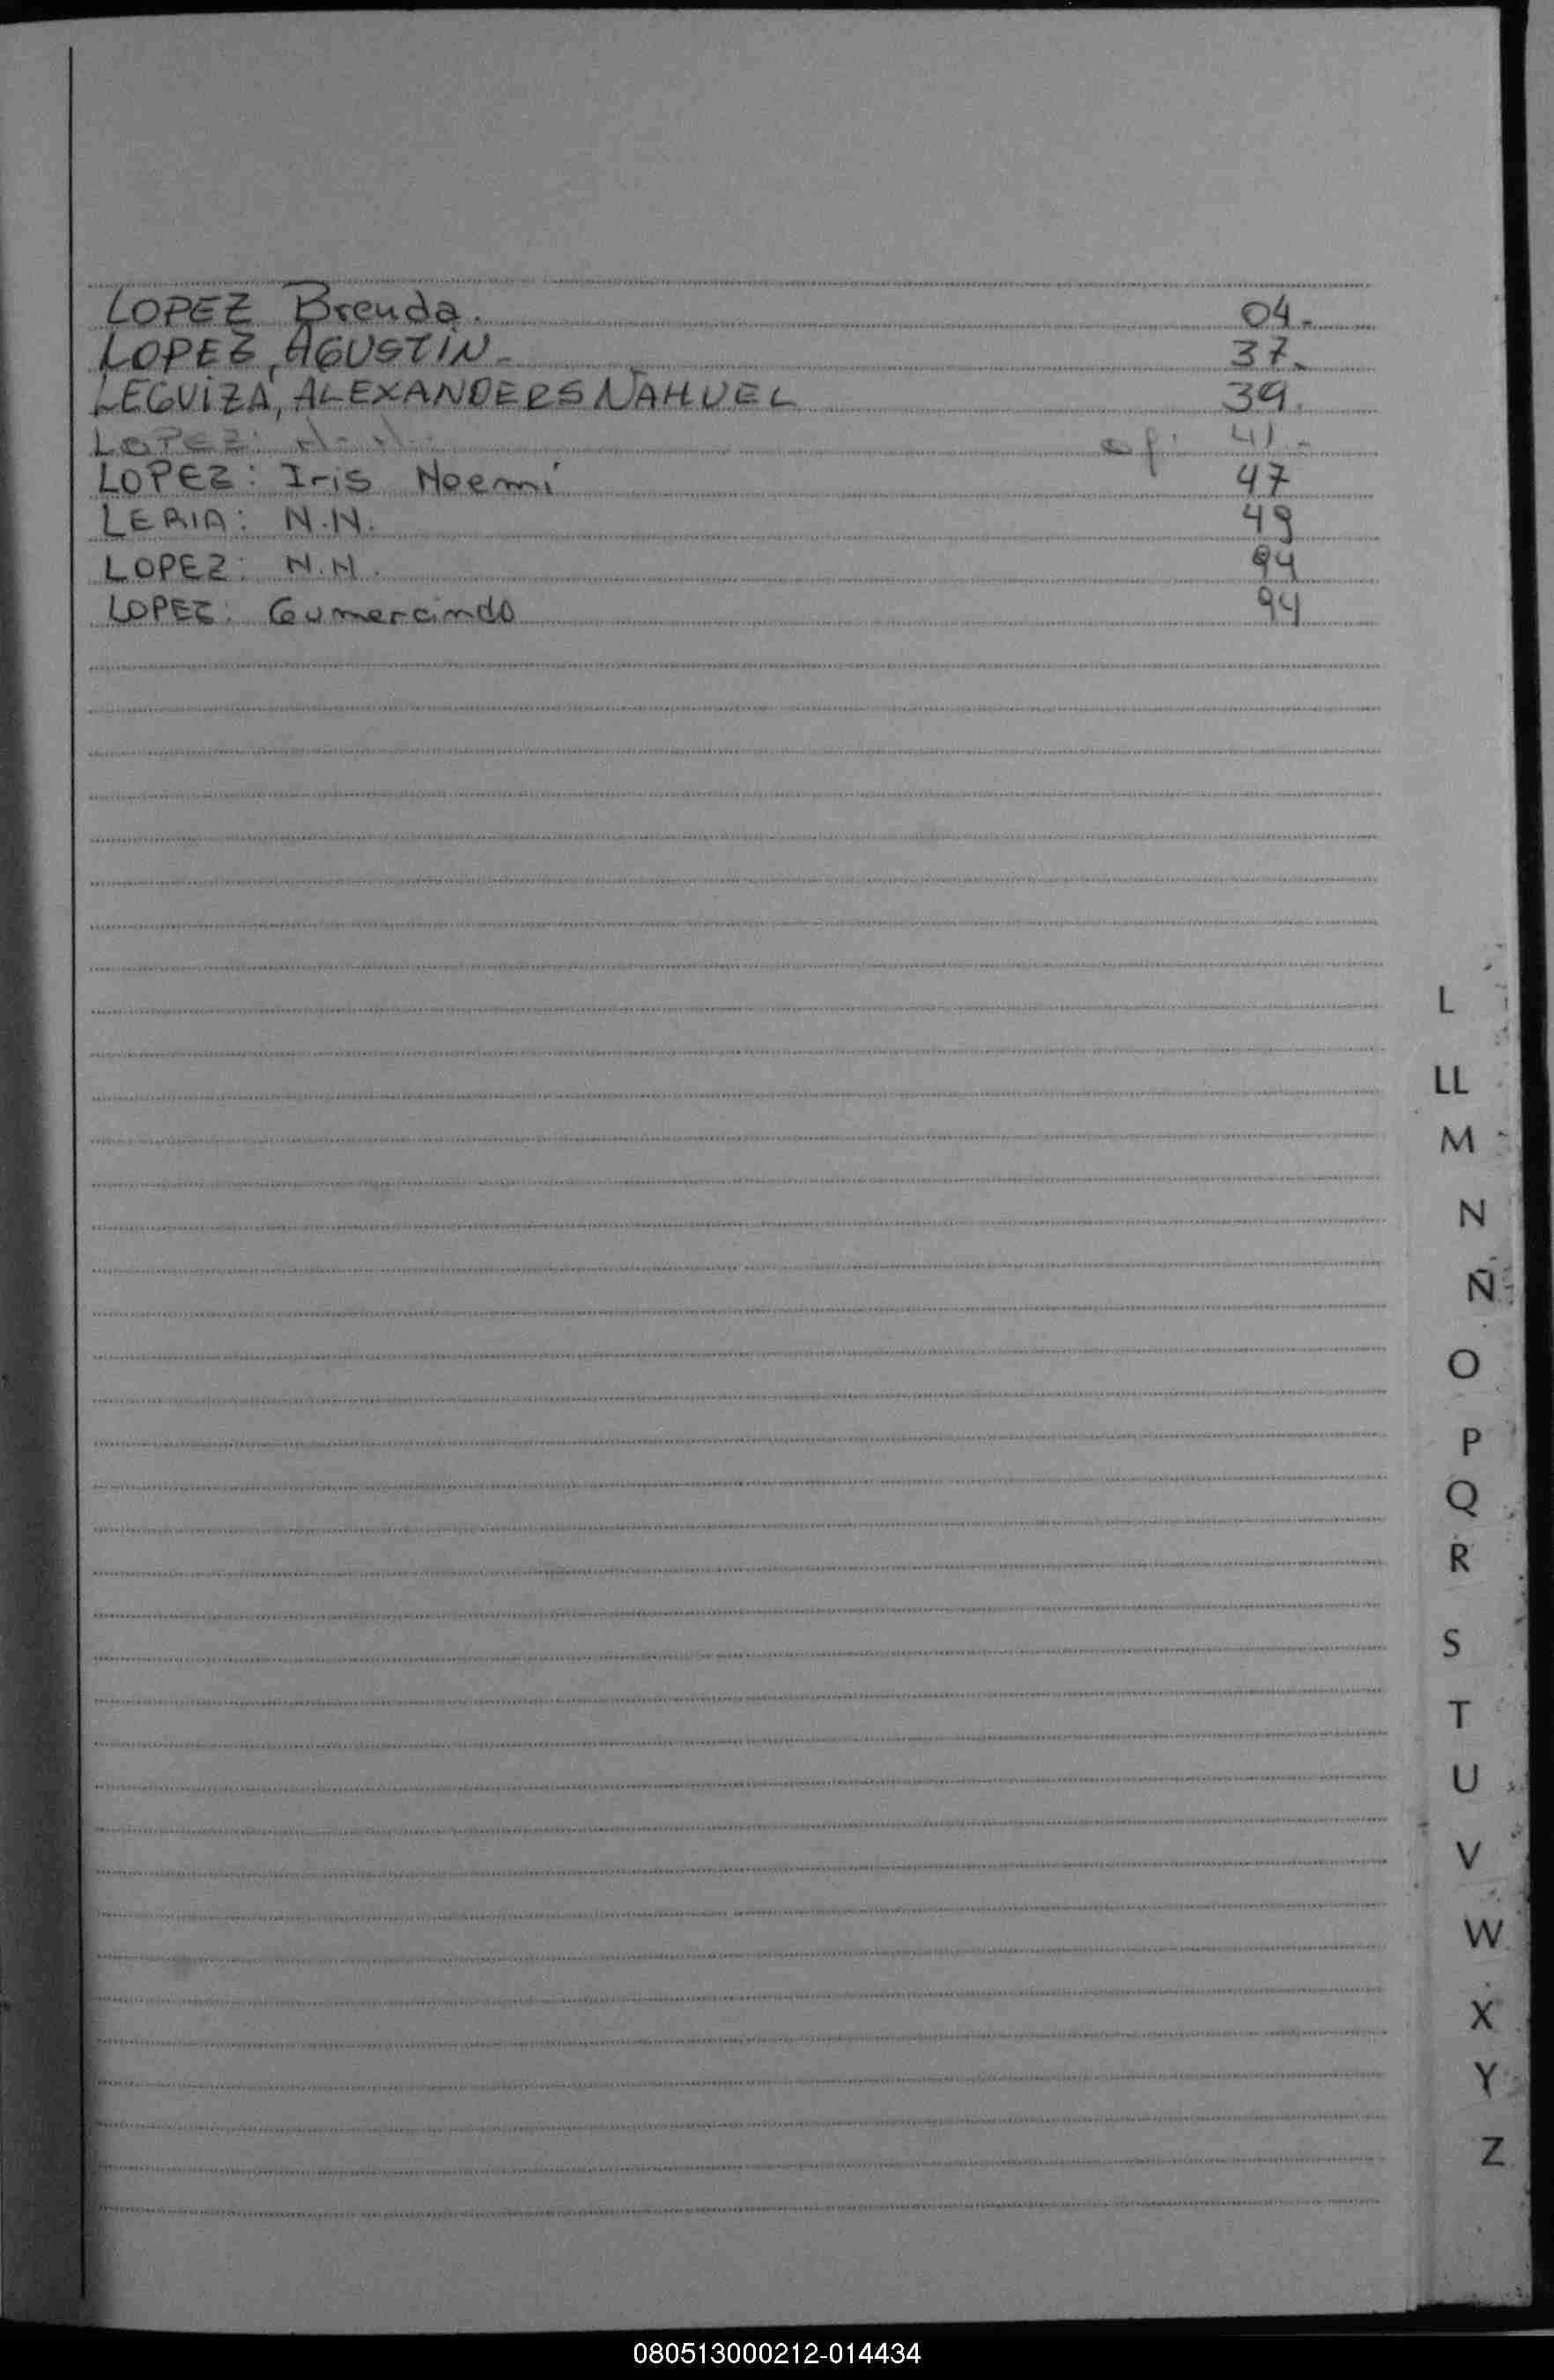 LOPEZ Brenda. 04.-
LOPEZ, AGUSTIN.- 37.-
LEGUIZA, ALEXANDERS NAHUEL 39.
LOPEZ: N.N. 41.-
LOPEZ: Iris Noemí 47
LERIA: N.N. 49
LOPEZ: N.N. 94
LOPEZ: Gumercindo 94
L
LL
M
N
Ñ
O
P
Q
R
S
T
U
V
W
X
Y
Z
080513000212-014434